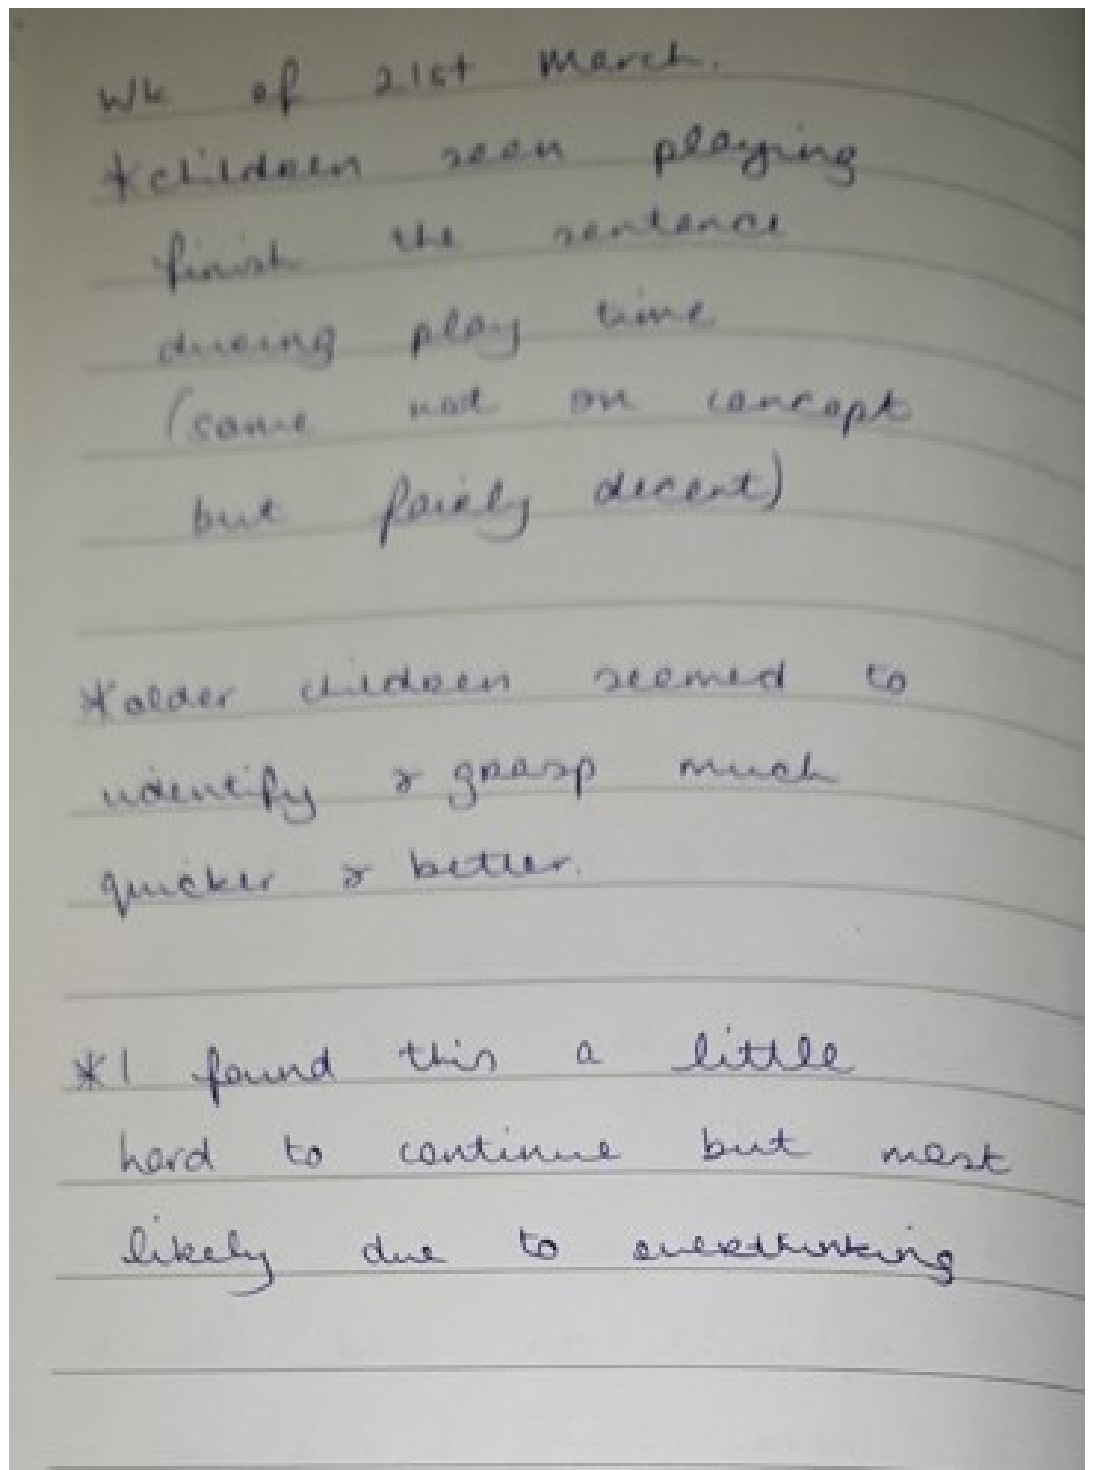 Wk of 21st March.
*children seen playing
finish the sentence
during play time
(some not on concept
but fairly decent)
*older children seemed to
identify & grasp much
quicker & better.
*I found this a little
hard to continue but most
likely due to overthinking